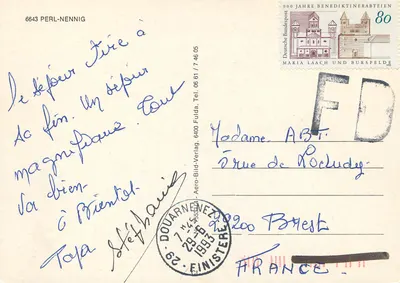 6643 PERL-NENNIG
le séjour tire à
sa fin. Un séjour
magnifique. Tout
va bien.
à Bientôt
Papa
Stéphanie
Aero-Bild-Verlag, 6400 Fulda, Tel. 06 61 / 7 46 05
900 JAHRE BENEDIKTINERABTEIEN
80
Deutsche Bundespost
MARIA LAACH UND BURSFELDE
FD
Madame ABT.
rue de Loctudy
29200 Brest
FRANCE
29-DOUARNENEZ
7-45
29-6
1993
FINISTERE